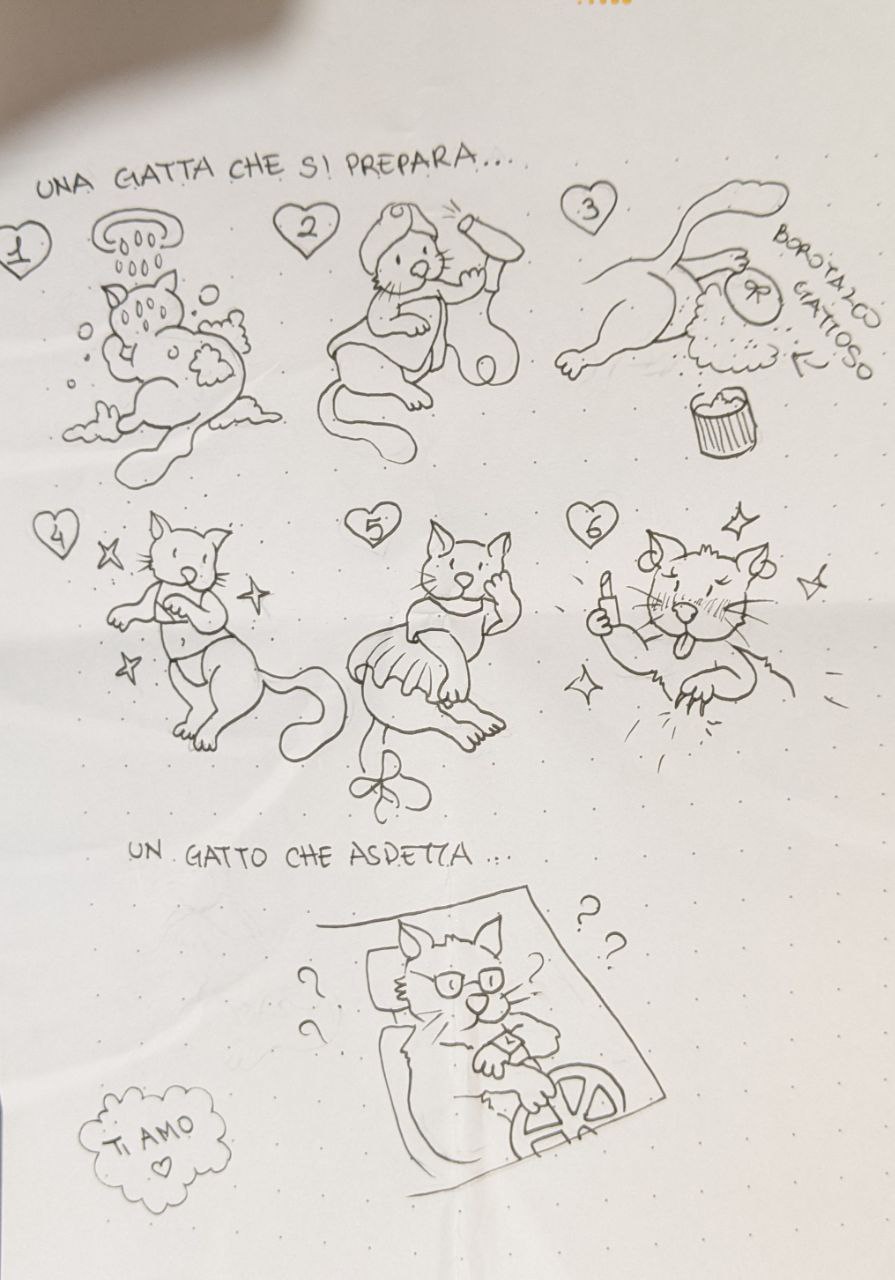 UNA GATTA CHE SI PREPARA...
1
2
3
BOROTALCO
GATTOSO
4
5
6
UN GATTO CHE ASPETTA...
? ?
? ? ?
TI AMO